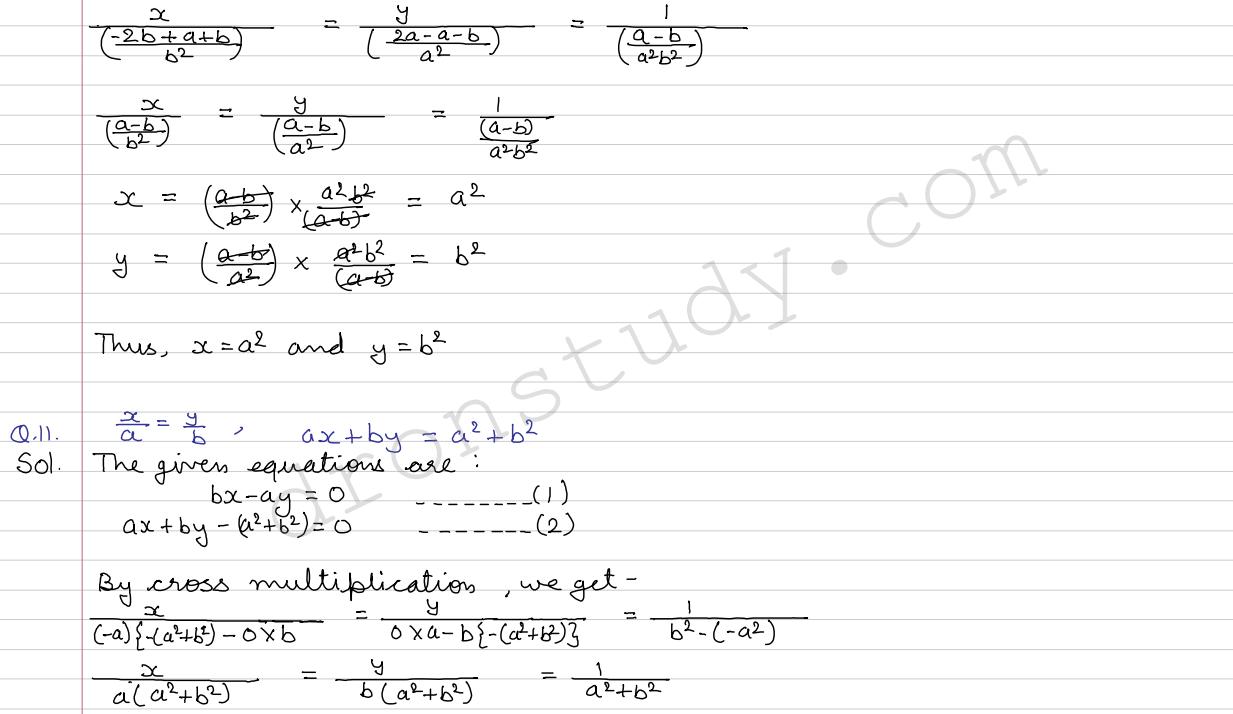 x/((-2b+a+b)/b²) = y/((2a-a-b)/a²) = 1/((a-b)/a²b²)
x/((a-b)/b²) = y/((a-b)/a²) = 1/((a-b)/a²b²)
x = ((a-b)/b²) × a²b²/(a-b) = a²
y = ((a-b)/a²) × a²b²/(a-b) = b²
Thus, x = a² and y = b²
Q.11. x/a = y/b , ax+by = a²+b²
Sol. The given equations are :
bx-ay = 0 --------(1)
ax+by-(a²+b²)=0 --------(2)
By cross multiplication, we get -
x/((-a){-(a²+b²)-0×b) = y/(0×a-b{-(a²+b²)}) = 1/(b²-(-a²))
x/(a(a²+b²)) = y/(b(a²+b²)) = 1/(a²+b²)
dronstudy.com